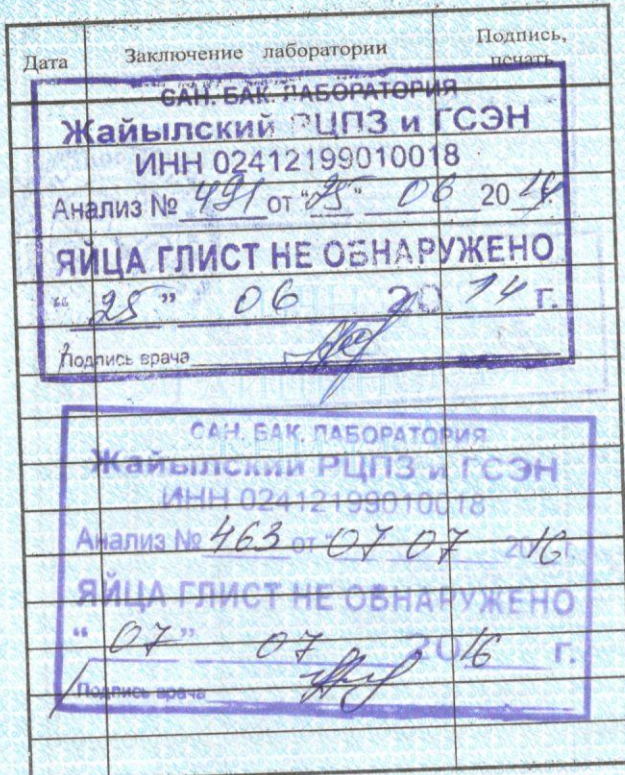 Дата Заключение лаборатории Подпись, печать
САН. БАК. ЛАБОРАТОРИЯ
Жайылский РЦПЗ и ГСЭН
ИНН 02412199010018
Анализ № 491 от "25" 06 2014г.
ЯЙЦА ГЛИСТ НЕ ОБНАРУЖЕНО
"25" 06 2014 г.
Подпись врача
САН. БАК. ЛАБОРАТОРИЯ
Жайылский РЦПЗ и ГСЭН
ИНН 02412199010018
Анализ № 463 от "07 07 2016 г.
ЯЙЦА ГЛИСТ НЕ ОБНАРУЖЕНО
"07" 07 2016 г.
Подпись врача